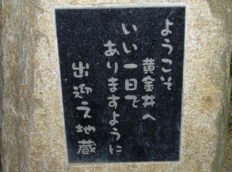 ようこそ
黄金井へ
いい一日で
ありますように
出迎え地蔵